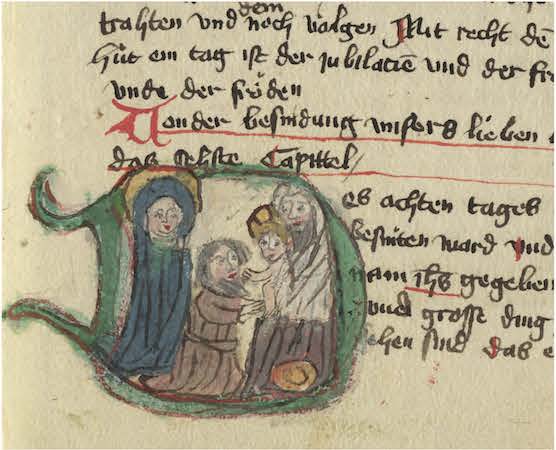 dem
trahten vnd noch volgen Mit recht de
hüt ein tag ist der jubilacie vnd der
vnde der fröden
Von der besnidung vnsers lieben
das sehste Capittel
es achten tages
besniten ward vnd
nam ihs gegeben
vnd grosse ding
sehen sind das e